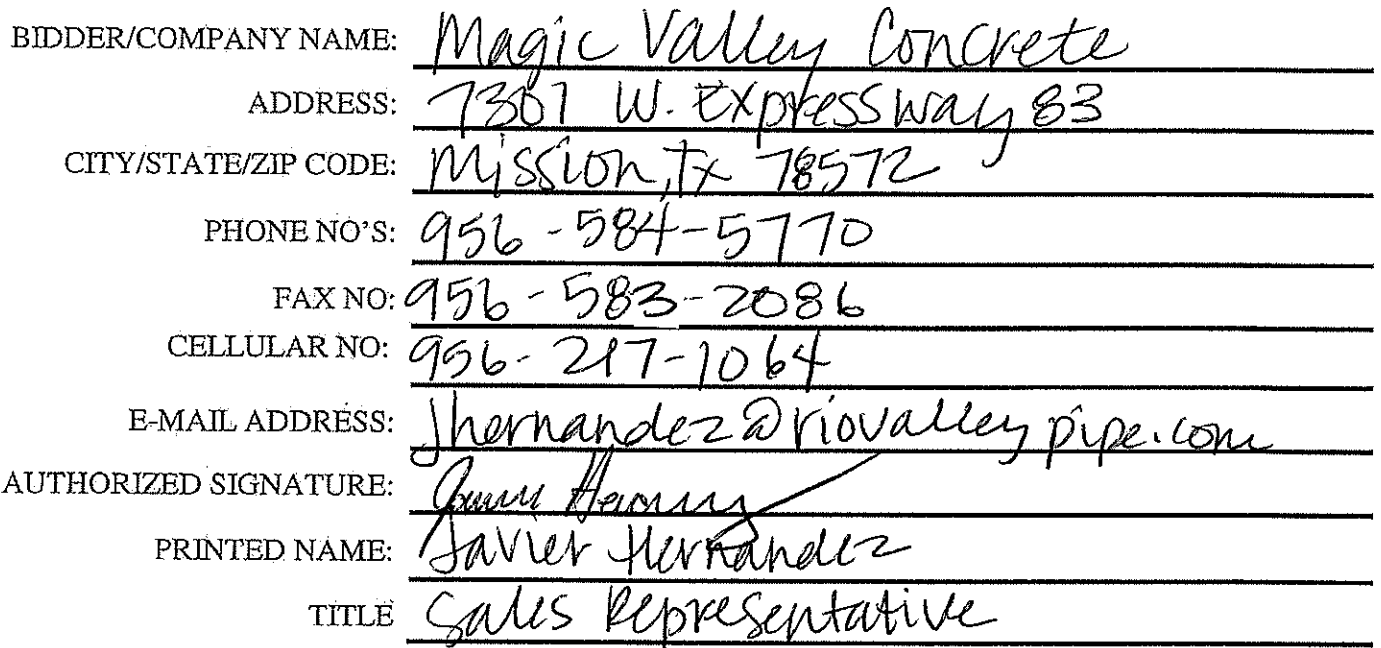 BIDDER/COMPANY NAME: Magic Valley Concrete
ADDRESS: 7301 W. Expressway 83
CITY/STATE/ZIP CODE: Mission, Tx 78572
PHONE NO'S: 956-584-5770
FAX NO: 956-583-2086
CELLULAR NO: 956-217-1064
E-MAIL ADDRESS: jhernandez@riovalleypipe.com
AUTHORIZED SIGNATURE:
PRINTED NAME: Javier Hernandez
TITLE Sales Representative